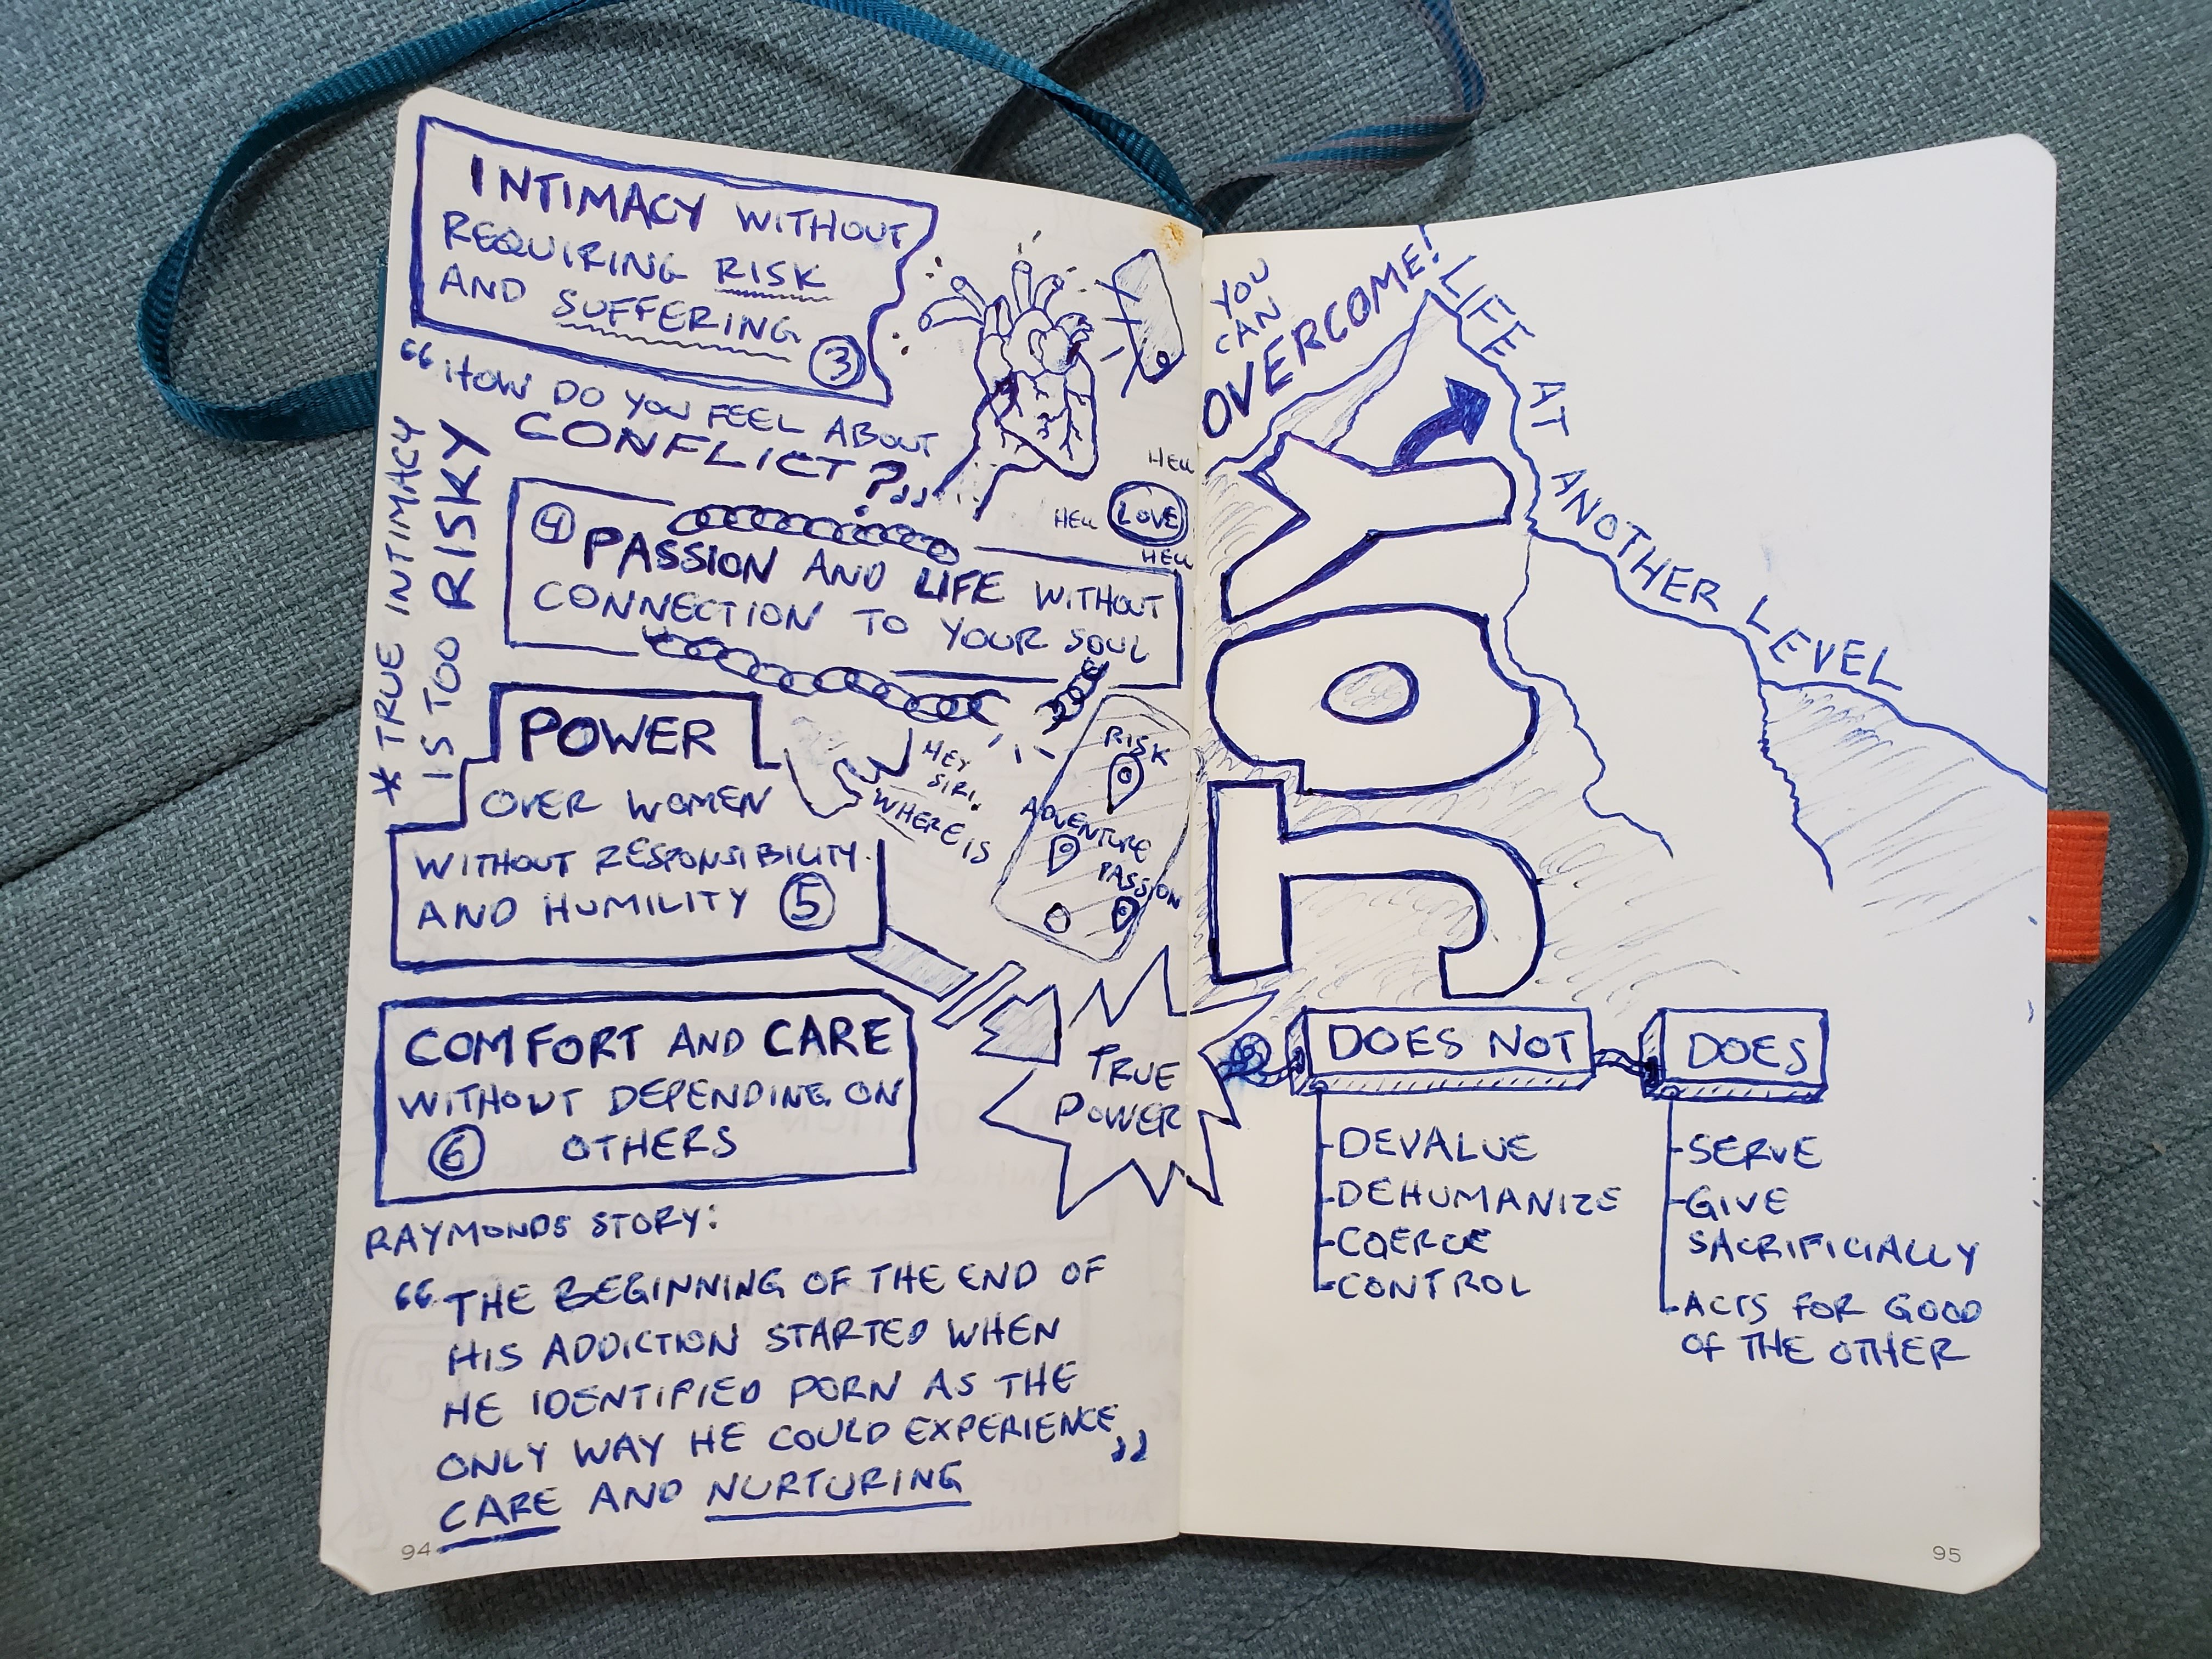 INTIMACY WITHOUT
REQUIRING RISK
AND SUFFERING.
3
"HOW DO YOU FEEL ABOUT
CONFLICT?"
* TRUE INTIMACY
IS TOO RISKY
HELL
HELL LOVE
HELL
4 PASSION AND LIFE WITHOUT
CONNECTION TO YOUR SOUL
POWER
OVER WOMEN
WITHOUT RESPONSIBILITY
AND HUMILITY 5
HEY
SIRI,
WHERE IS
RISK
ADVENTURE
PASSION
COMFORT AND CARE
WITHOUT DEPENDING ON
6 OTHERS
TRUE
POWER
RAYMONDS STORY:
"THE BEGINNING OF THE END OF
HIS ADDICTION STARTED WHEN
HE IDENTIFIED PORN AS THE
ONLY WAY HE COULD EXPERIENCE
CARE AND NURTURING"
94
YOU
CAN
OVERCOME!
LIFE AT ANOTHER LEVEL
JOY
DOES NOT
-DEVALUE
-DEHUMANIZE
-COERCE
-CONTROL
DOES
-SERVE
-GIVE
SACRIFICIALLY
-ACTS FOR GOOD
OF THE OTHER
95